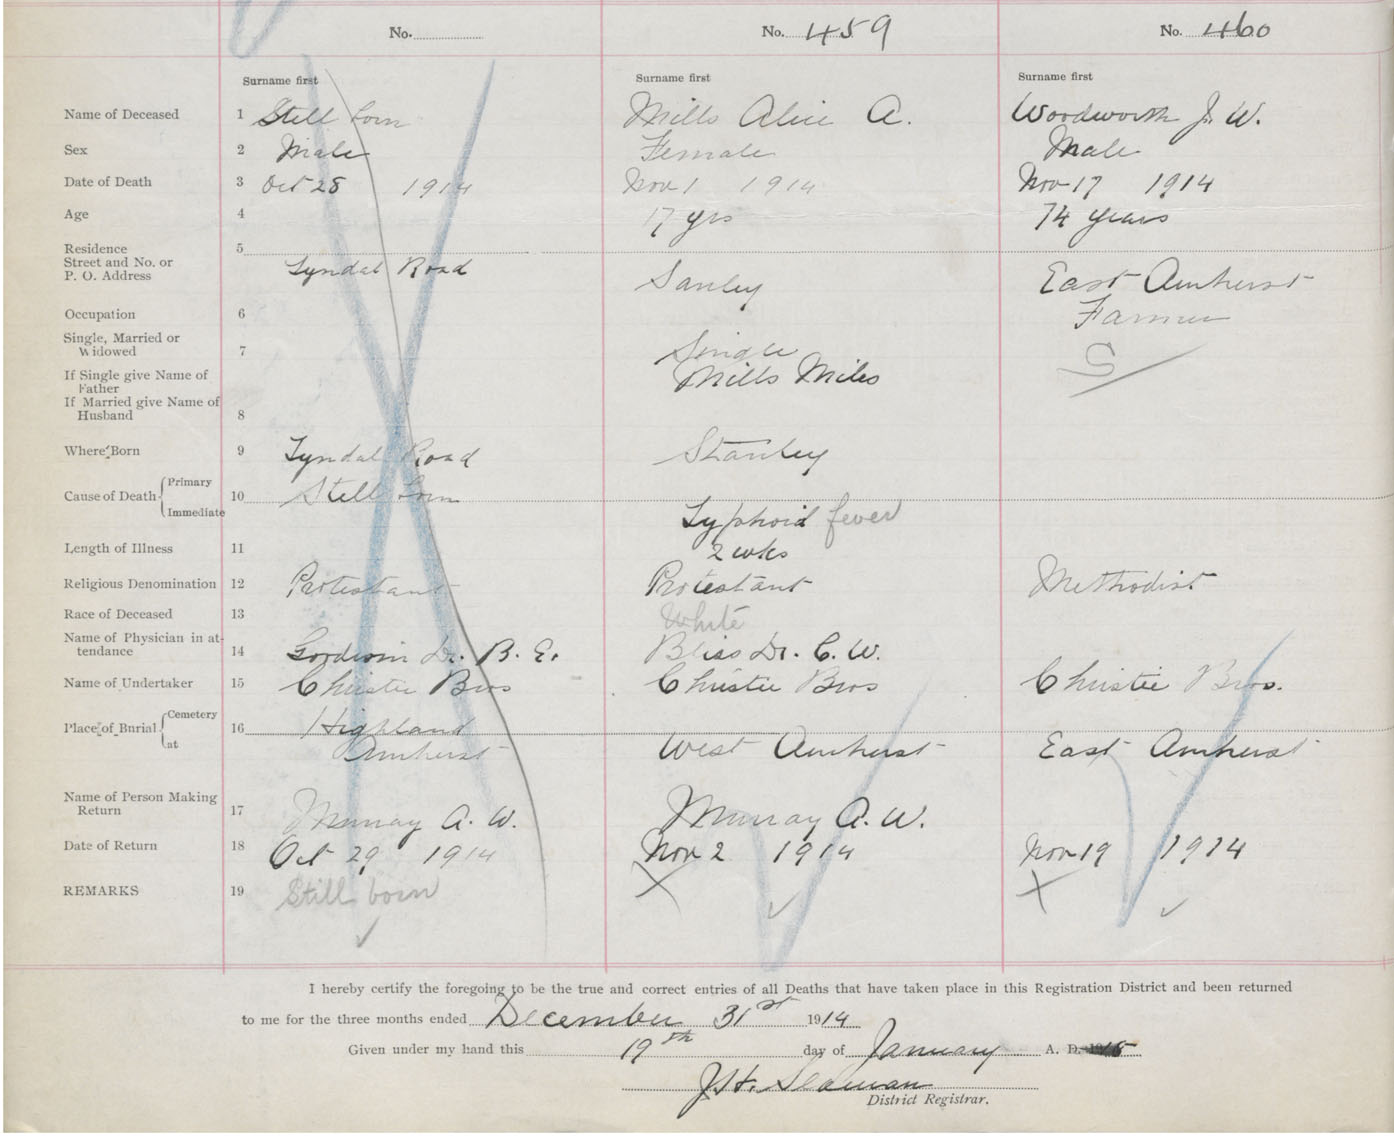 No. No. 459 No. 460
Surname first Surname first Surname first
Name of Deceased 1 Still born Mills Alice A. Woodworth J. W.
Sex 2 Male Female Male
Date of Death 3 Oct 28 1914 Nov 1 1914 Nov 17 1914
Age 4 17 yrs 74 years
Residence 5
Street and No. or
P. O. Address Tyndal Road Stanley East Amherst
Occupation 6 Farmer
Single, Married or
Widowed 7 Single S
If Single give Name of
Father Mills Miles
If Married give Name of
Husband 8
Where Born 9 Tyndal Road Stanley
Cause of Death Primary 10 Still born
Immediate Typhoid fever
Length of Illness 11 2 wks
Religious Denomination 12 Protestant Protestant Methodist
Race of Deceased 13 White
Name of Physician in at-
tendance 14 Goodwin Dr. B. E. Bliss Dr. C. W.
Name of Undertaker 15 Christie Bros Christie Bros Christie Bros.
Place of Burial Cemetery 16 Highland
at Amherst West Amherst East Amherst
Name of Person Making
Return 17 Murray A. W. Murray A. W.
Date of Return 18 Oct 29 1914 Nov 2 1914 Nov 19 1914
REMARKS 19 Still born X X
I hereby certify the foregoing to be the true and correct entries of all Deaths that have taken place in this Registration District and been returned
to me for the three months ended December 31st 1914
Given under my hand this 19th day of January A. D. 1915
Seaman
District Registrar.